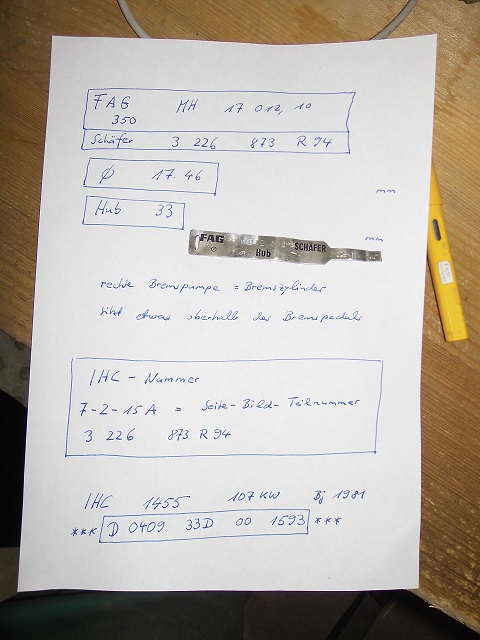 FAG MH 17 012, 10
350
Schäfer 3 226 873 R 94
Ø 17.46
mm
Hub 33
FAG SCHÄFER
Ø Hub
mm
rechte Bremspumpe = Bremszylinder
sitzt etwas oberhalb des Bremspedals
IHC - Nummer
7-2-15A = Seite-Bild-Teilnummer
3 226 873 R 94
IHC 1455 107 KW Bj 1981
*** D 0409 33D 00 1593 ***